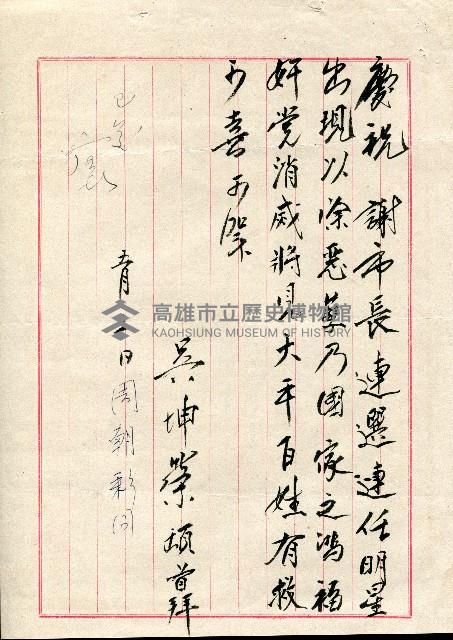 慶祝　謝市長連選連任明星
出現以除惡孽乃國家之鴻福
奸党消滅將見太平百姓有救
可喜可架
吳坤榮頓首拜
五月一日周朝彩同
已
高雄市立歷史博物館
KAOHSIUNG MUSEUM OF HISTORY